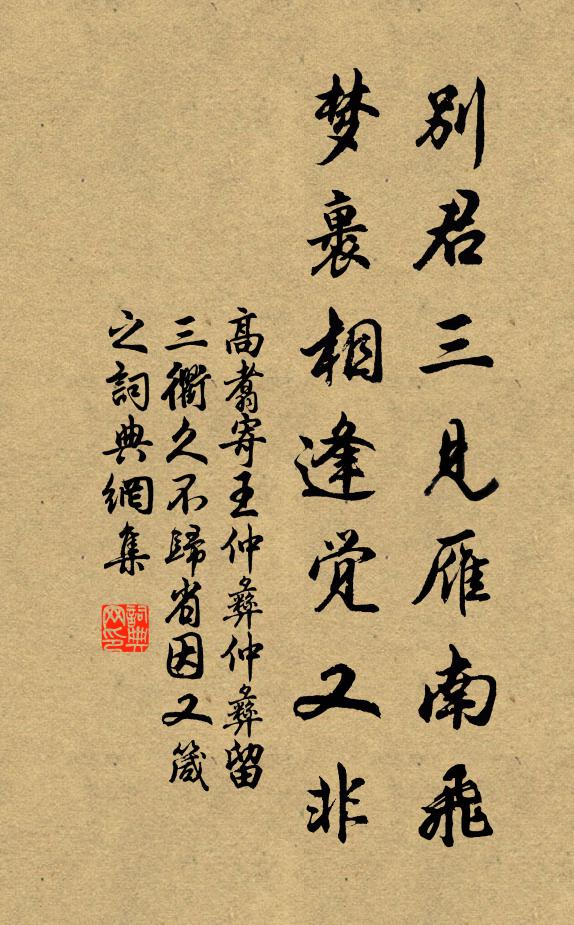 別君三見雁南飛
梦裏相逢覚又非
高翥寄王仲彝仲彝留
三衢久不歸省因又箴
之詞典網集
詞典网印